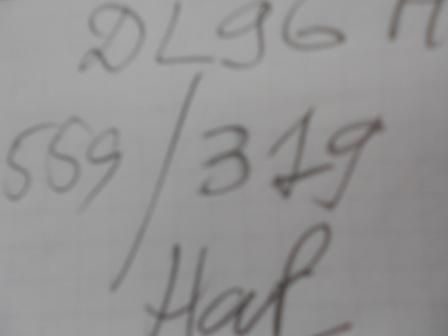 DL96
559/319
Hal